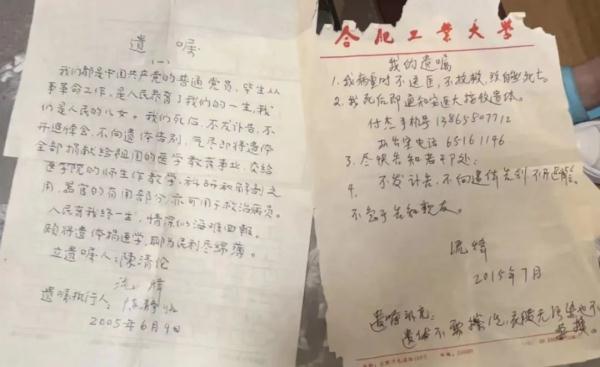 遗嘱
(一)
我们都是中国共产党的普通党员,毕生从
事革命工作,是人民养育了我们的一生,我
们是人民的儿女。我们死后,不发讣告,不
开追悼会,不向遗体告别,气尽即将遗体
全部捐献给祖国的医学教育事业,交给
医学院的师生作教学,科研和解剖之
用,器官的有用部分,亦可用于救治病员。
人民育我终一生,情深似海难回报。
愿将遗体捐医学,聊为民利尽绵薄。
立遗嘱人:陈清伦
沈嫜
遗嘱执行人:陈静
2005年6月9日
合肥工业大学
我的遗嘱
1. 我病重时不送医,不抢救,以自然死亡。
2. 我死后即通知安医大接收遗体。
付杰手机号 13865807712
办公室电话 65161146
3. 尽快告知老干处:
4. 不发讣告,不向遗体告别,不开追悼会。
不急于告知亲友。
沈
2015年7月
遗嘱补充:
遗体不要擦洗,衣被无污染也不
要换。